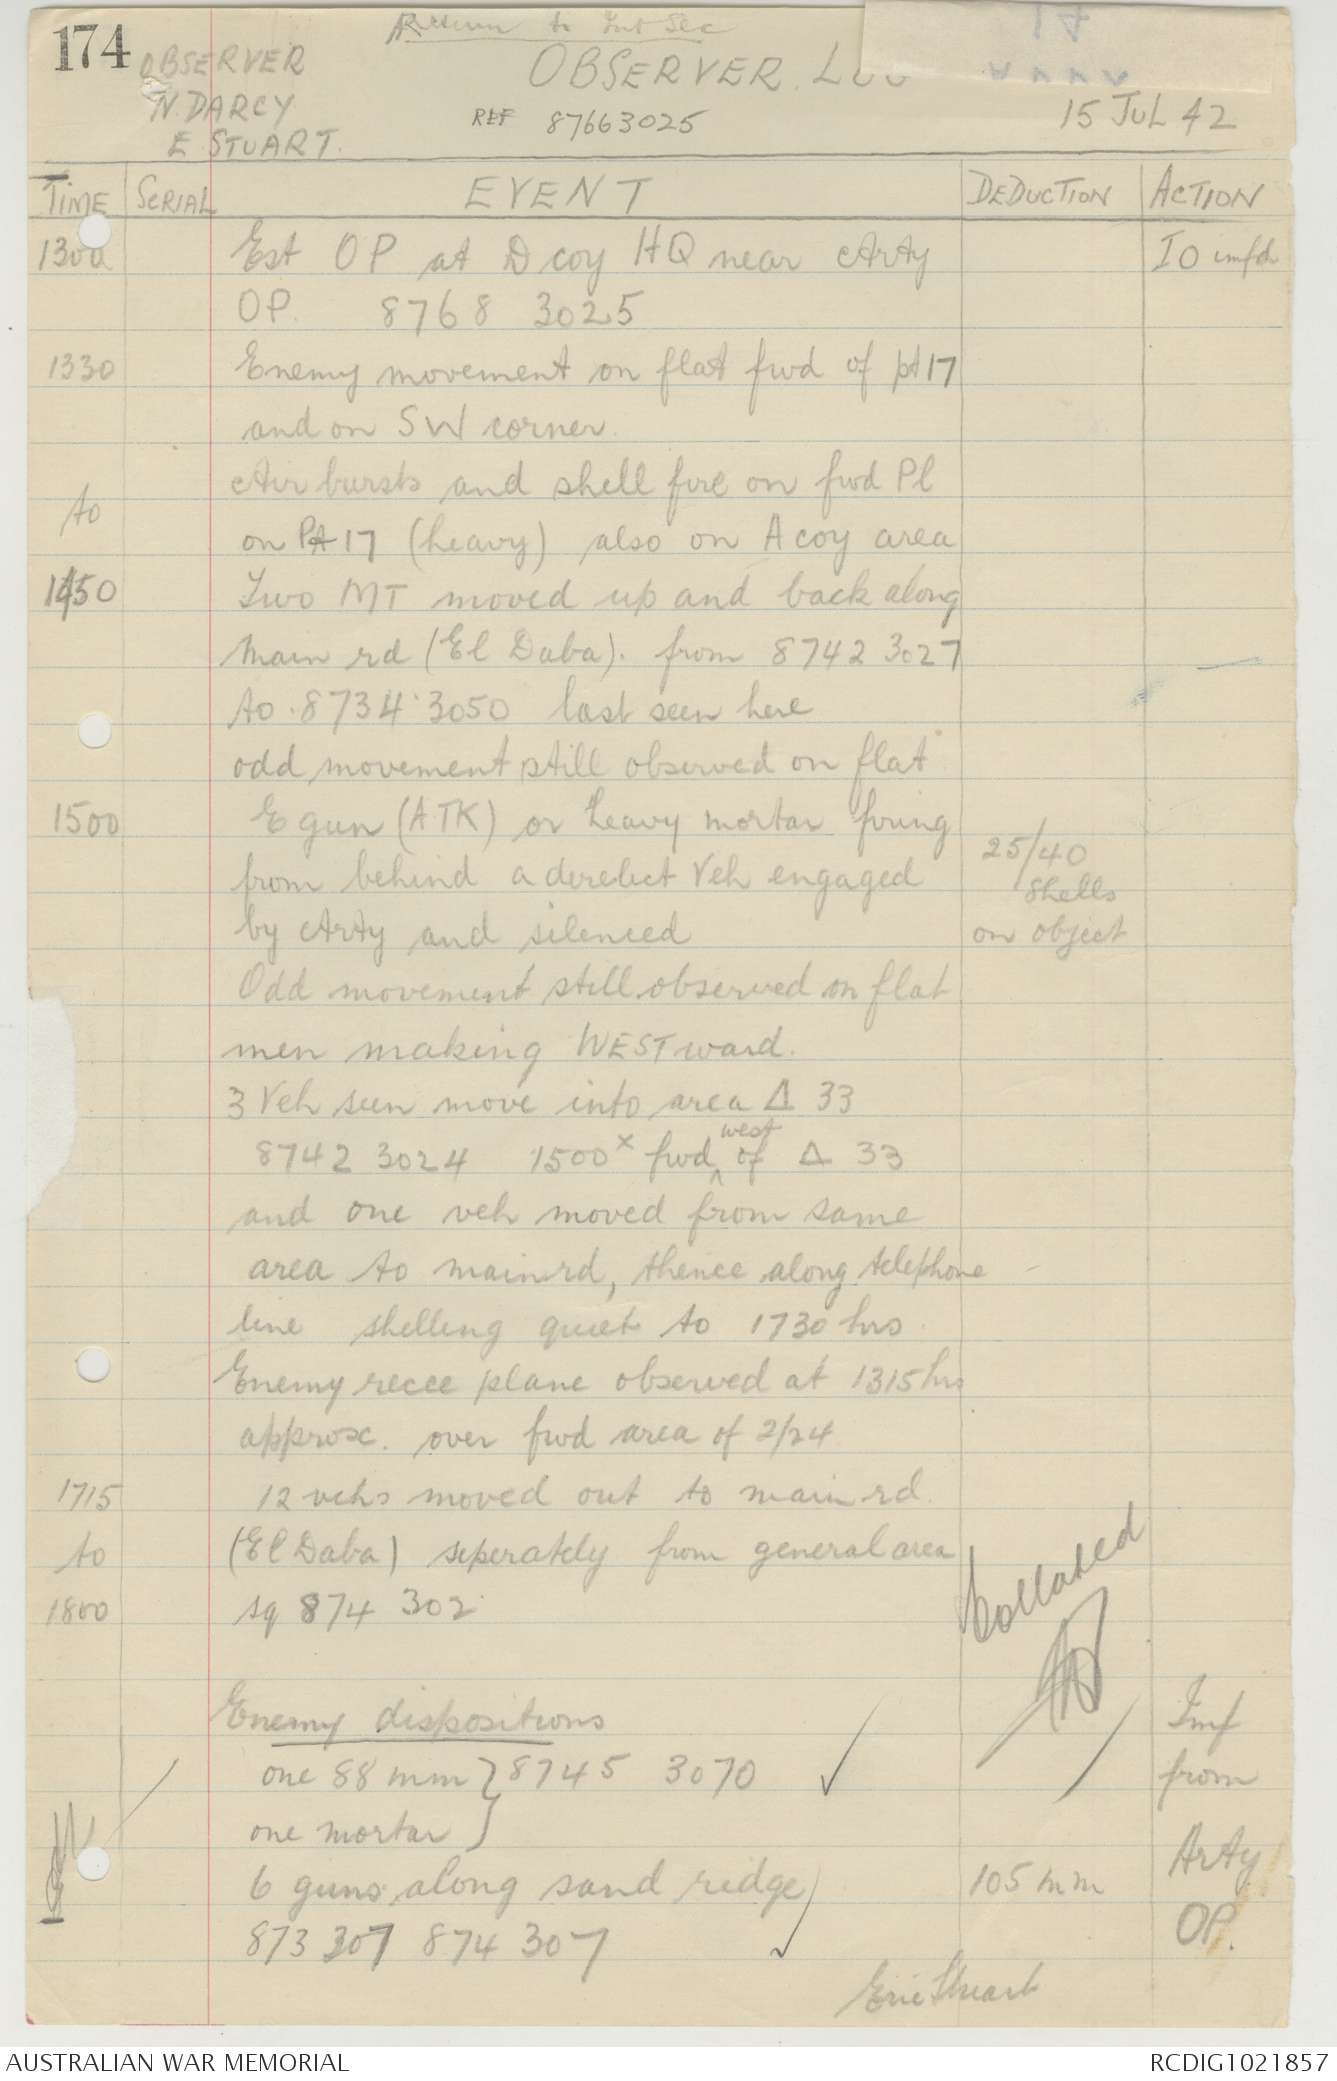 174
Return to Int Sec
OBSERVER
N. DARCY
E STUART.
OBSERVER LOG
REF 87663025
15 JUL 42
TIME SERIAL EVENT DEDUCTION ACTION
1300 Est OP at D coy HQ near Arty IO infd
OP. 8768 3025
1330 Enemy movement on flat fwd of pt 17
and on SW corner.
Air bursts and shell fire on fwd Pl
to on Pt 17 (heavy) also on A coy area
1450 Two MT moved up and back along
Main rd (El Daba). from 8742 3027
to 8734 3050 last seen here
odd movement still observed on flat
1500 E gun (ATK) or heavy mortar firing 25/40
from behind a derelict Veh engaged shells
by Arty and silenced on object
Odd movement still observed on flat
men making WESTward.
3 Veh seen move into area Δ 33
8742 3024 1500x fwd west of Δ 33
and one veh moved from same
area to main rd, thence along telephone
line shelling quiet to 1730 hrs
Enemy recce plane observed at 1315 hrs
approx. over fwd area of 2/24
1715 12 vehs moved out to main rd.
to (El Daba) seperately from general area
1800 sq 874 302
Collated
Enemy dispositions Inf
one 88 mm } 8745 3070 from
one mortar } Arty
6 guns along sand ridge 105 mm OP.
873 307 874 307
Eric Stuart
AUSTRALIAN WAR MEMORIAL RCDIG1021857